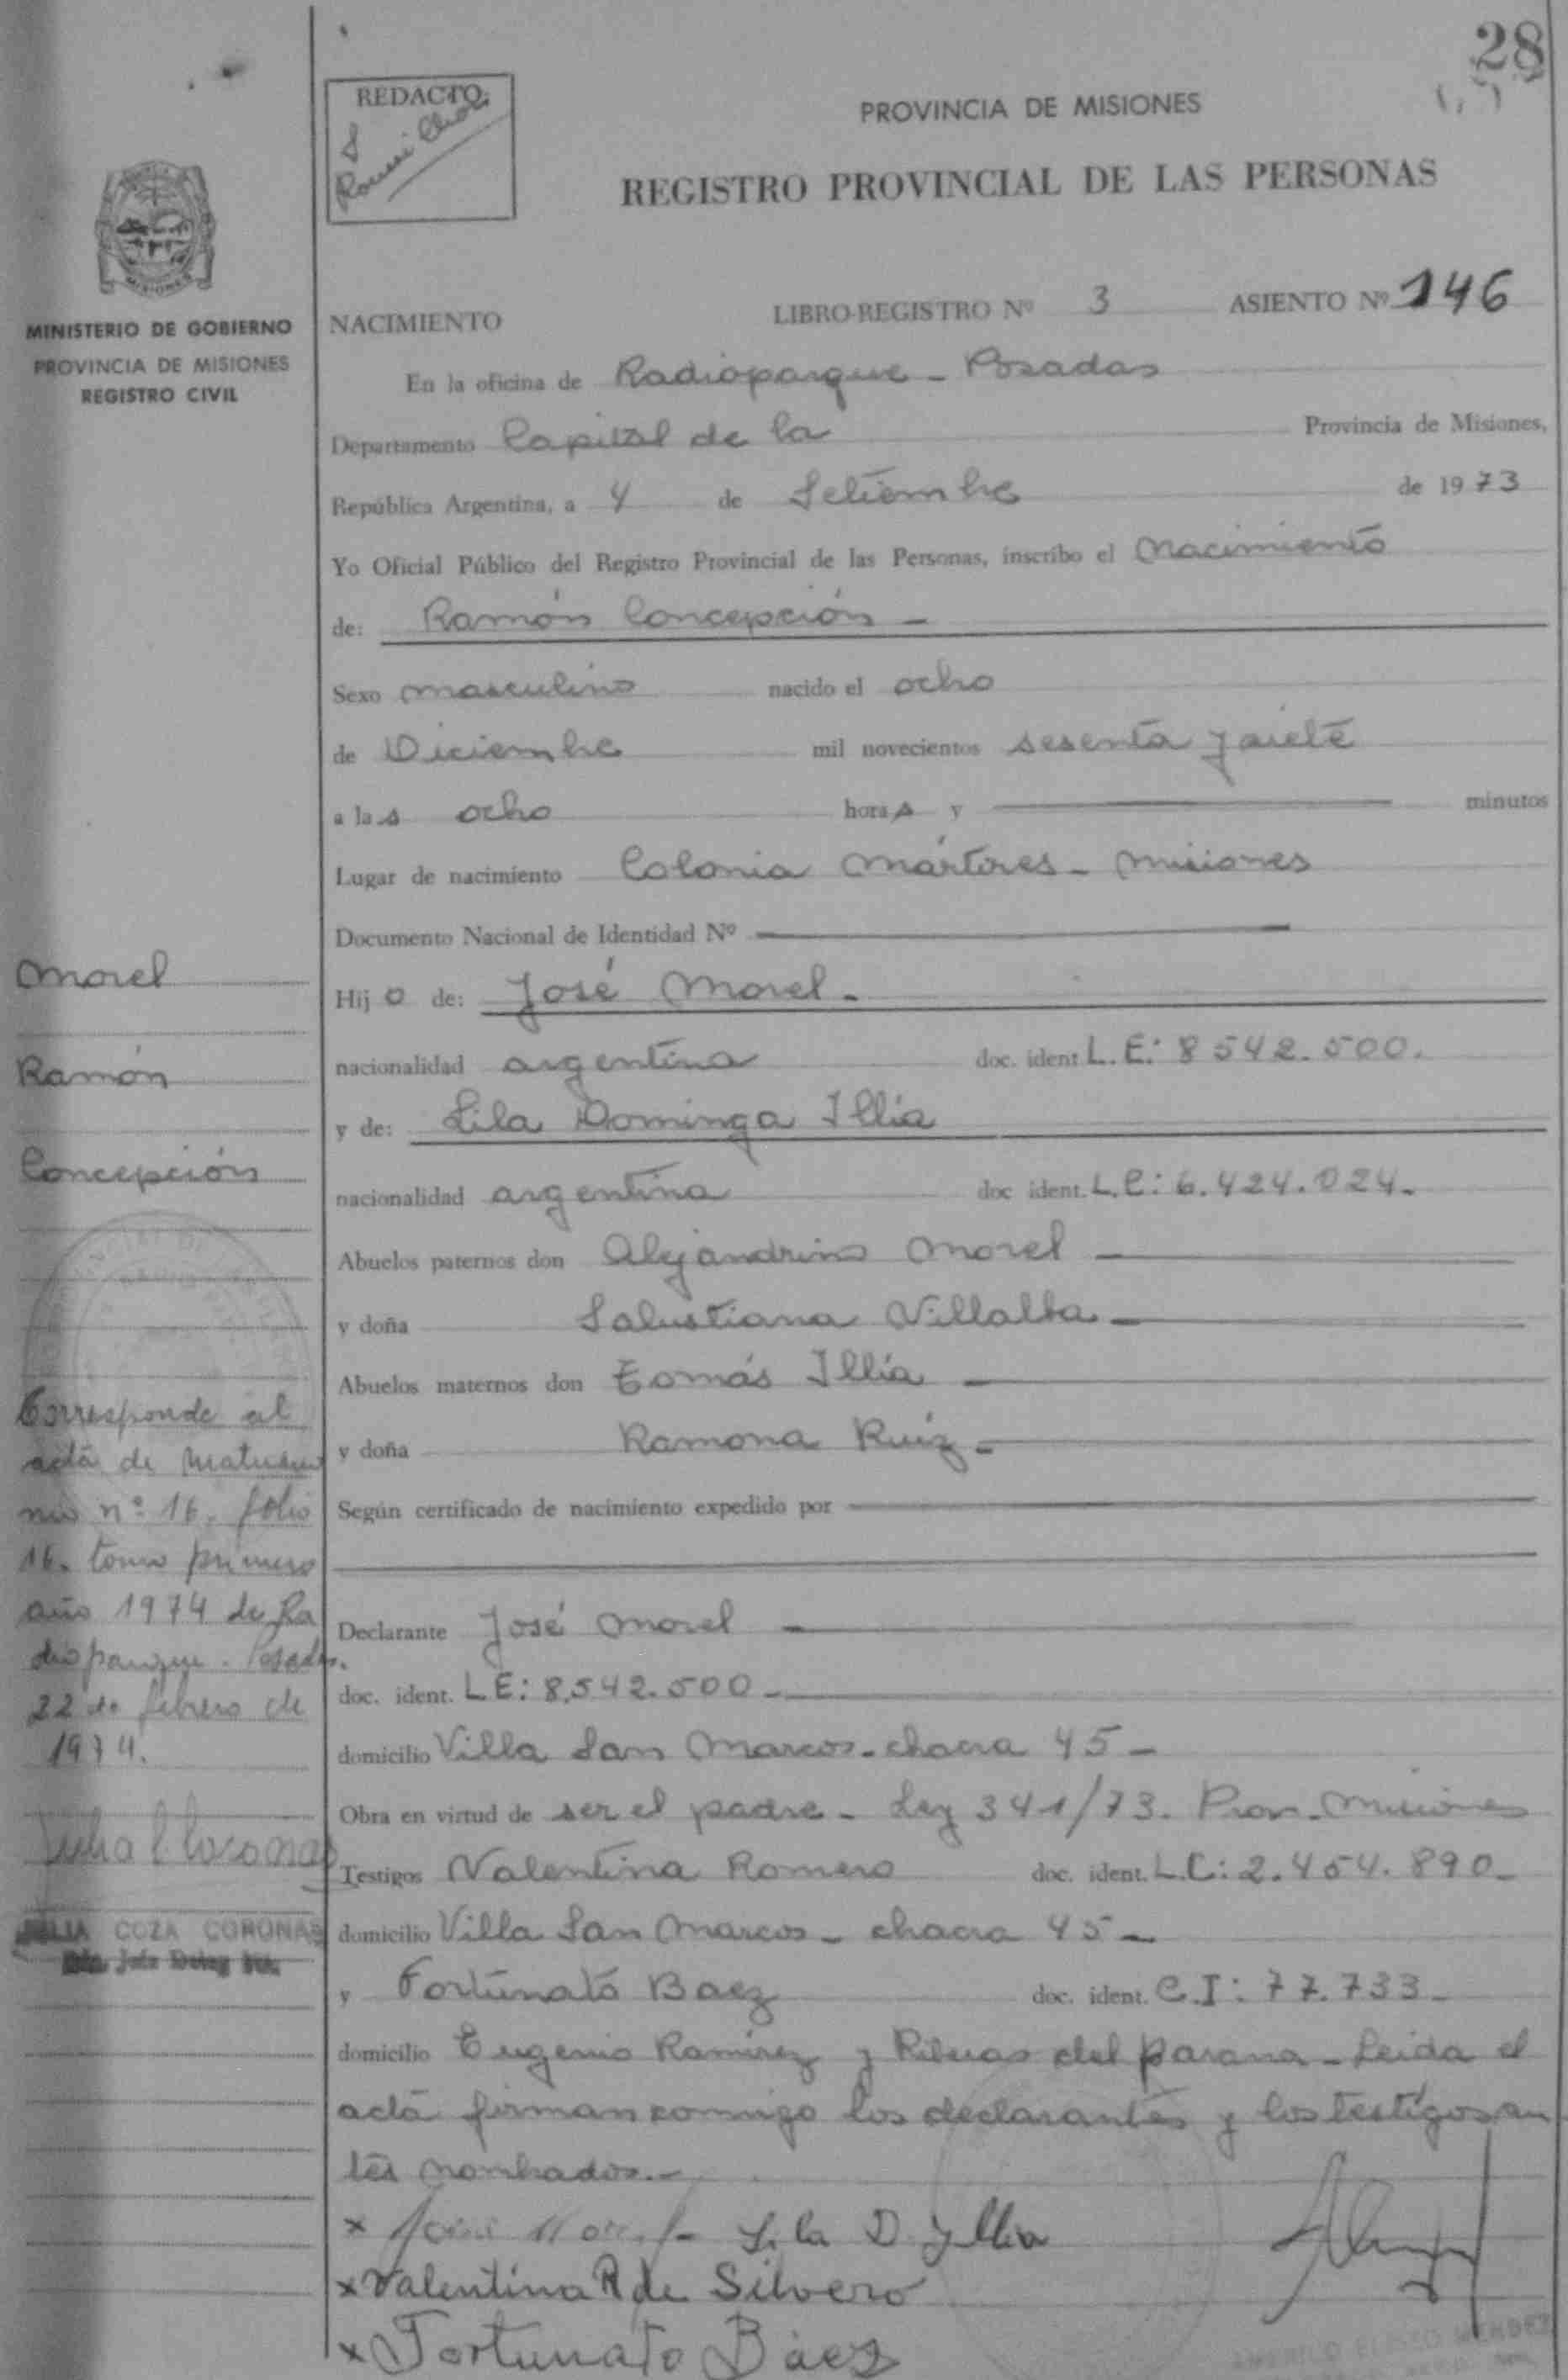 28
REDACTO:
PROVINCIA DE MISIONES
REGISTRO PROVINCIAL DE LAS PERSONAS
MISIONES
MINISTERIO DE GOBIERNO
PROVINCIA DE MISIONES
REGISTRO CIVIL
NACIMIENTO LIBRO-REGISTRO Nº 3 ASIENTO Nº 146
En la oficina de Radioparque - Posadas
Departamento Capital de la Provincia de Misiones,
República Argentina, a 4 de Setiembre de 1973
Yo Oficial Público del Registro Provincial de las Personas, inscribo el Nacimiento
de: Ramón Concepción -
Sexo masculino nacido el ocho
de Diciembre mil novecientos sesenta y siete
a las ocho horas y minutos
Lugar de nacimiento Colonia Mártires - Misiones
Documento Nacional de Identidad Nº
Hijo de: José Morel -
nacionalidad argentina doc. ident. L.E: 8542.500.
y de: Lila Dominga Illia
nacionalidad argentina doc ident. L.C: 6.424.024.
Abuelos paternos don Alejandrino Morel
y doña Salustiana Villalba
Abuelos maternos don Tomás Illia
y doña Ramona Ruiz
Según certificado de nacimiento expedido por
Declarante José Morel
doc. ident. LE: 8.542.500
domicilio Villa San Marcos - chacra 45 -
Obra en virtud de ser el padre - Ley 341/73. Prov. Misiones
Testigos Valentina Romero doc. ident. L.C: 2.454.890
domicilio Villa San Marcos - chacra 45 -
y Fortunato Baez doc. ident. C.I: 77.733
domicilio Eugenio Ramirez y Riberas del Parana - Leida el
acta firman conmigo los declarantes y los testigos an
tes nombrados. -
x José Morel Lila D. yllia
x Valentina R de Silvero
x Fortunato Báez
Morel
Ramón
Concepción
Corresponde al
acta de matrimo
nio nº 16. folio
16. tomo primero
año 1974 de Ra
dioparque. Posadas.
22 de febrero de
1974.
JULIA COZA CORONAS